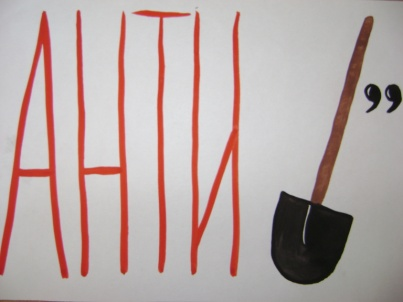 АНТИ ,,